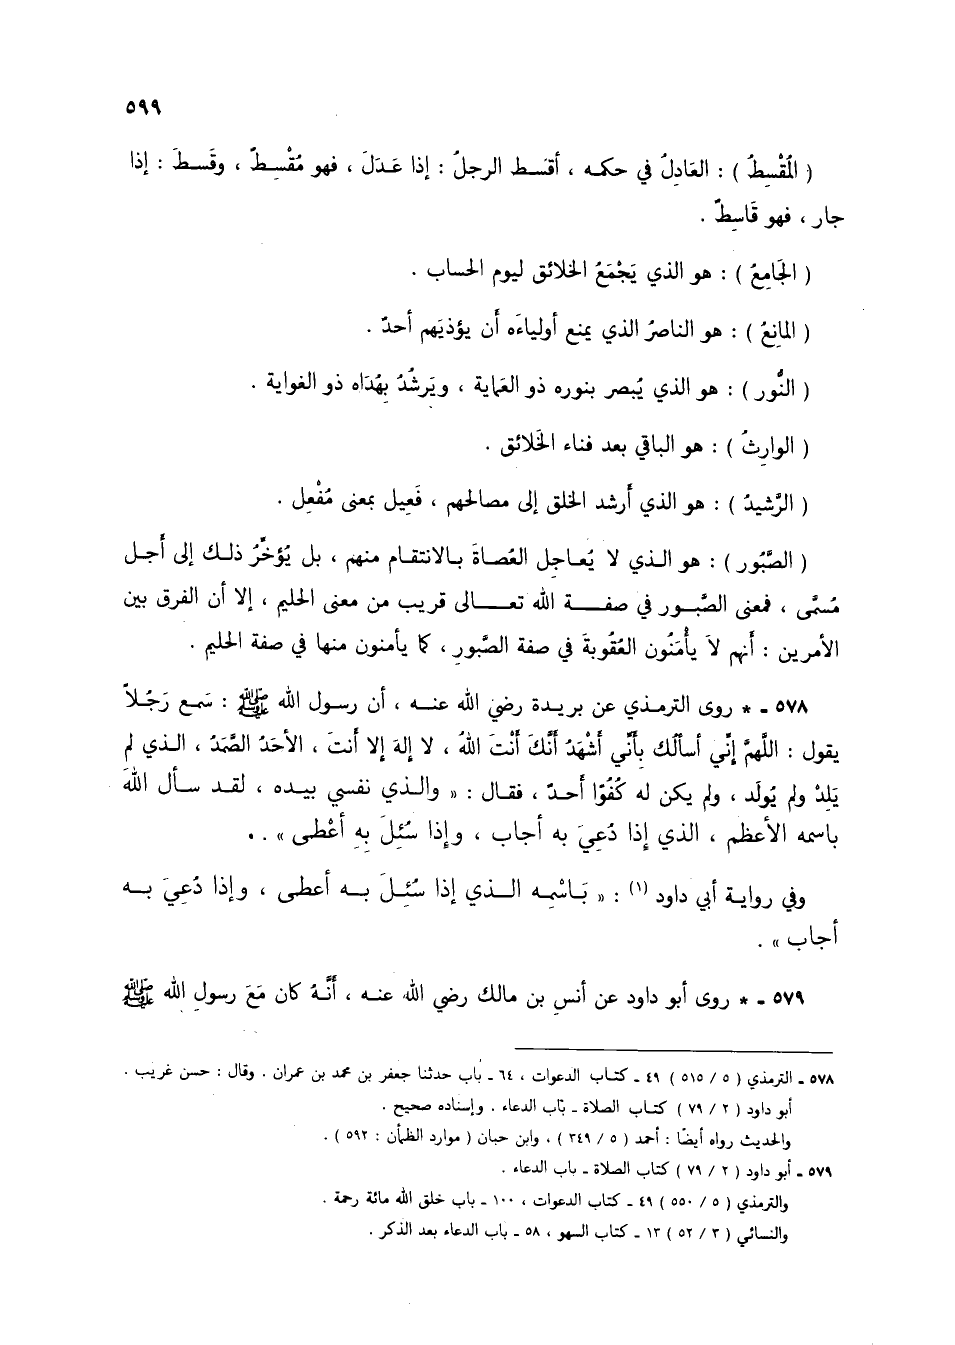 ٥٩٩
( المُقْسِطُ ) : العَادِلُ في حكمه ، أقسَط الرجلُ : إذا عَدَلَ ، فهو مُقْسِطٌ ، وقَسطَ : إذا
جار ، فهو قَاسِطٌ .
( الجَامِعُ ) : هو الذي يَجْمَعُ الخلائق ليوم الحساب .
( المانِعُ ) : هو الناصرُ الذي يمنع أولياءَه أَن يؤذيَهم أحدٌ .
( النُّور ) : هو الذي يُبصر بنوره ذو العَماية ، ويَرشُدُ بِهُدَاه ذو الغواية .
( الوارِثُ ) : هو الباقي بعد فناء الخَلائق .
( الرَّشيدُ ) : هو الذي أَرشد الخلق إلى مصالحهم ، فَعِيل بمعنى مُفْعِل .
( الصَّبُور ) : هو الذي لا يُعاجِل العُصاةَ بالانتقام منهم ، بل يُؤخِّرُ ذلك إلى أَجل
مُسمَّى ، فمعنى الصَّبور في صفة الله تعالى قريب من معنى الحليم ، إلا أن الفرق بين
الأمرين : أَنهم لاَ يأْمَنُون العُقُوبةَ في صفة الصَّبور ، كما يأمنون منها في صفة الحليم .
٥٧٨ - * روى الترمذي عن بريدة رضي الله عنه ، أن رسول الله ﷺ : سَمع رَجُلاً
يقول : اللَّهمَّ إِنِّي أسألُك بأَنِّي أَشْهَدُ أَنَّكَ أَنْتَ اللهُ ، لا إلهَ إلا أَنتَ ، الأحَدُ الصَّمَدُ ، الذي لم
يَلِدْ ولم يُولَد ، ولم يكن له كُفُوًا أَحدٌ ، فقال : « والذي نفسي بيده ، لقد سأل اللهَ
باسمه الأعظم ، الذي إِذا دُعِيَ به أجاب ، وإِذا سُئِلَ بِهِ أعْطى » . .
وفي رواية أبي داود (١) : « بَاسْمِه الذي إذا سُئِلَ به أعطى ، وإذا دُعِيَ به
أجاب » .
٥٧٩ - * روى أبو داود عن أنس بن مالك رضي الله عنه ، أَنَّهُ كان مَعَ رسولِ الله ﷺ
٥٧٨ - الترمذي ( ٥ / ٥١٥ ) ٤٩ - كتاب الدعوات ، ٦٤ - باب حدثنا جعفر بن محمد بن عمران . وقال : حسن غريب .
أبو داود ( ٢ / ٧٩ ) كتاب الصلاة - باب الدعاء . وإسناده صحيح .
والحديث رواه أيضًا : أحمد ( ٥ / ٣٤٩ ) ، وابن حبان ( موارد الظمأن : ٥٩٢ ) .
٥٧٩ - أبو داود ( ٢ / ٧٩ ) كتاب الصلاة - باب الدعاء .
والترمذي ( ٥ / ٥٥٠ ) ٤٩ - كتاب الدعوات ، ١٠٠ - باب خلق الله مائة رحمة .
والنسائي ( ٣ / ٥٢ ) ١٣ - كتاب السهو ، ٥٨ - باب الدعاء بعد الذكر .